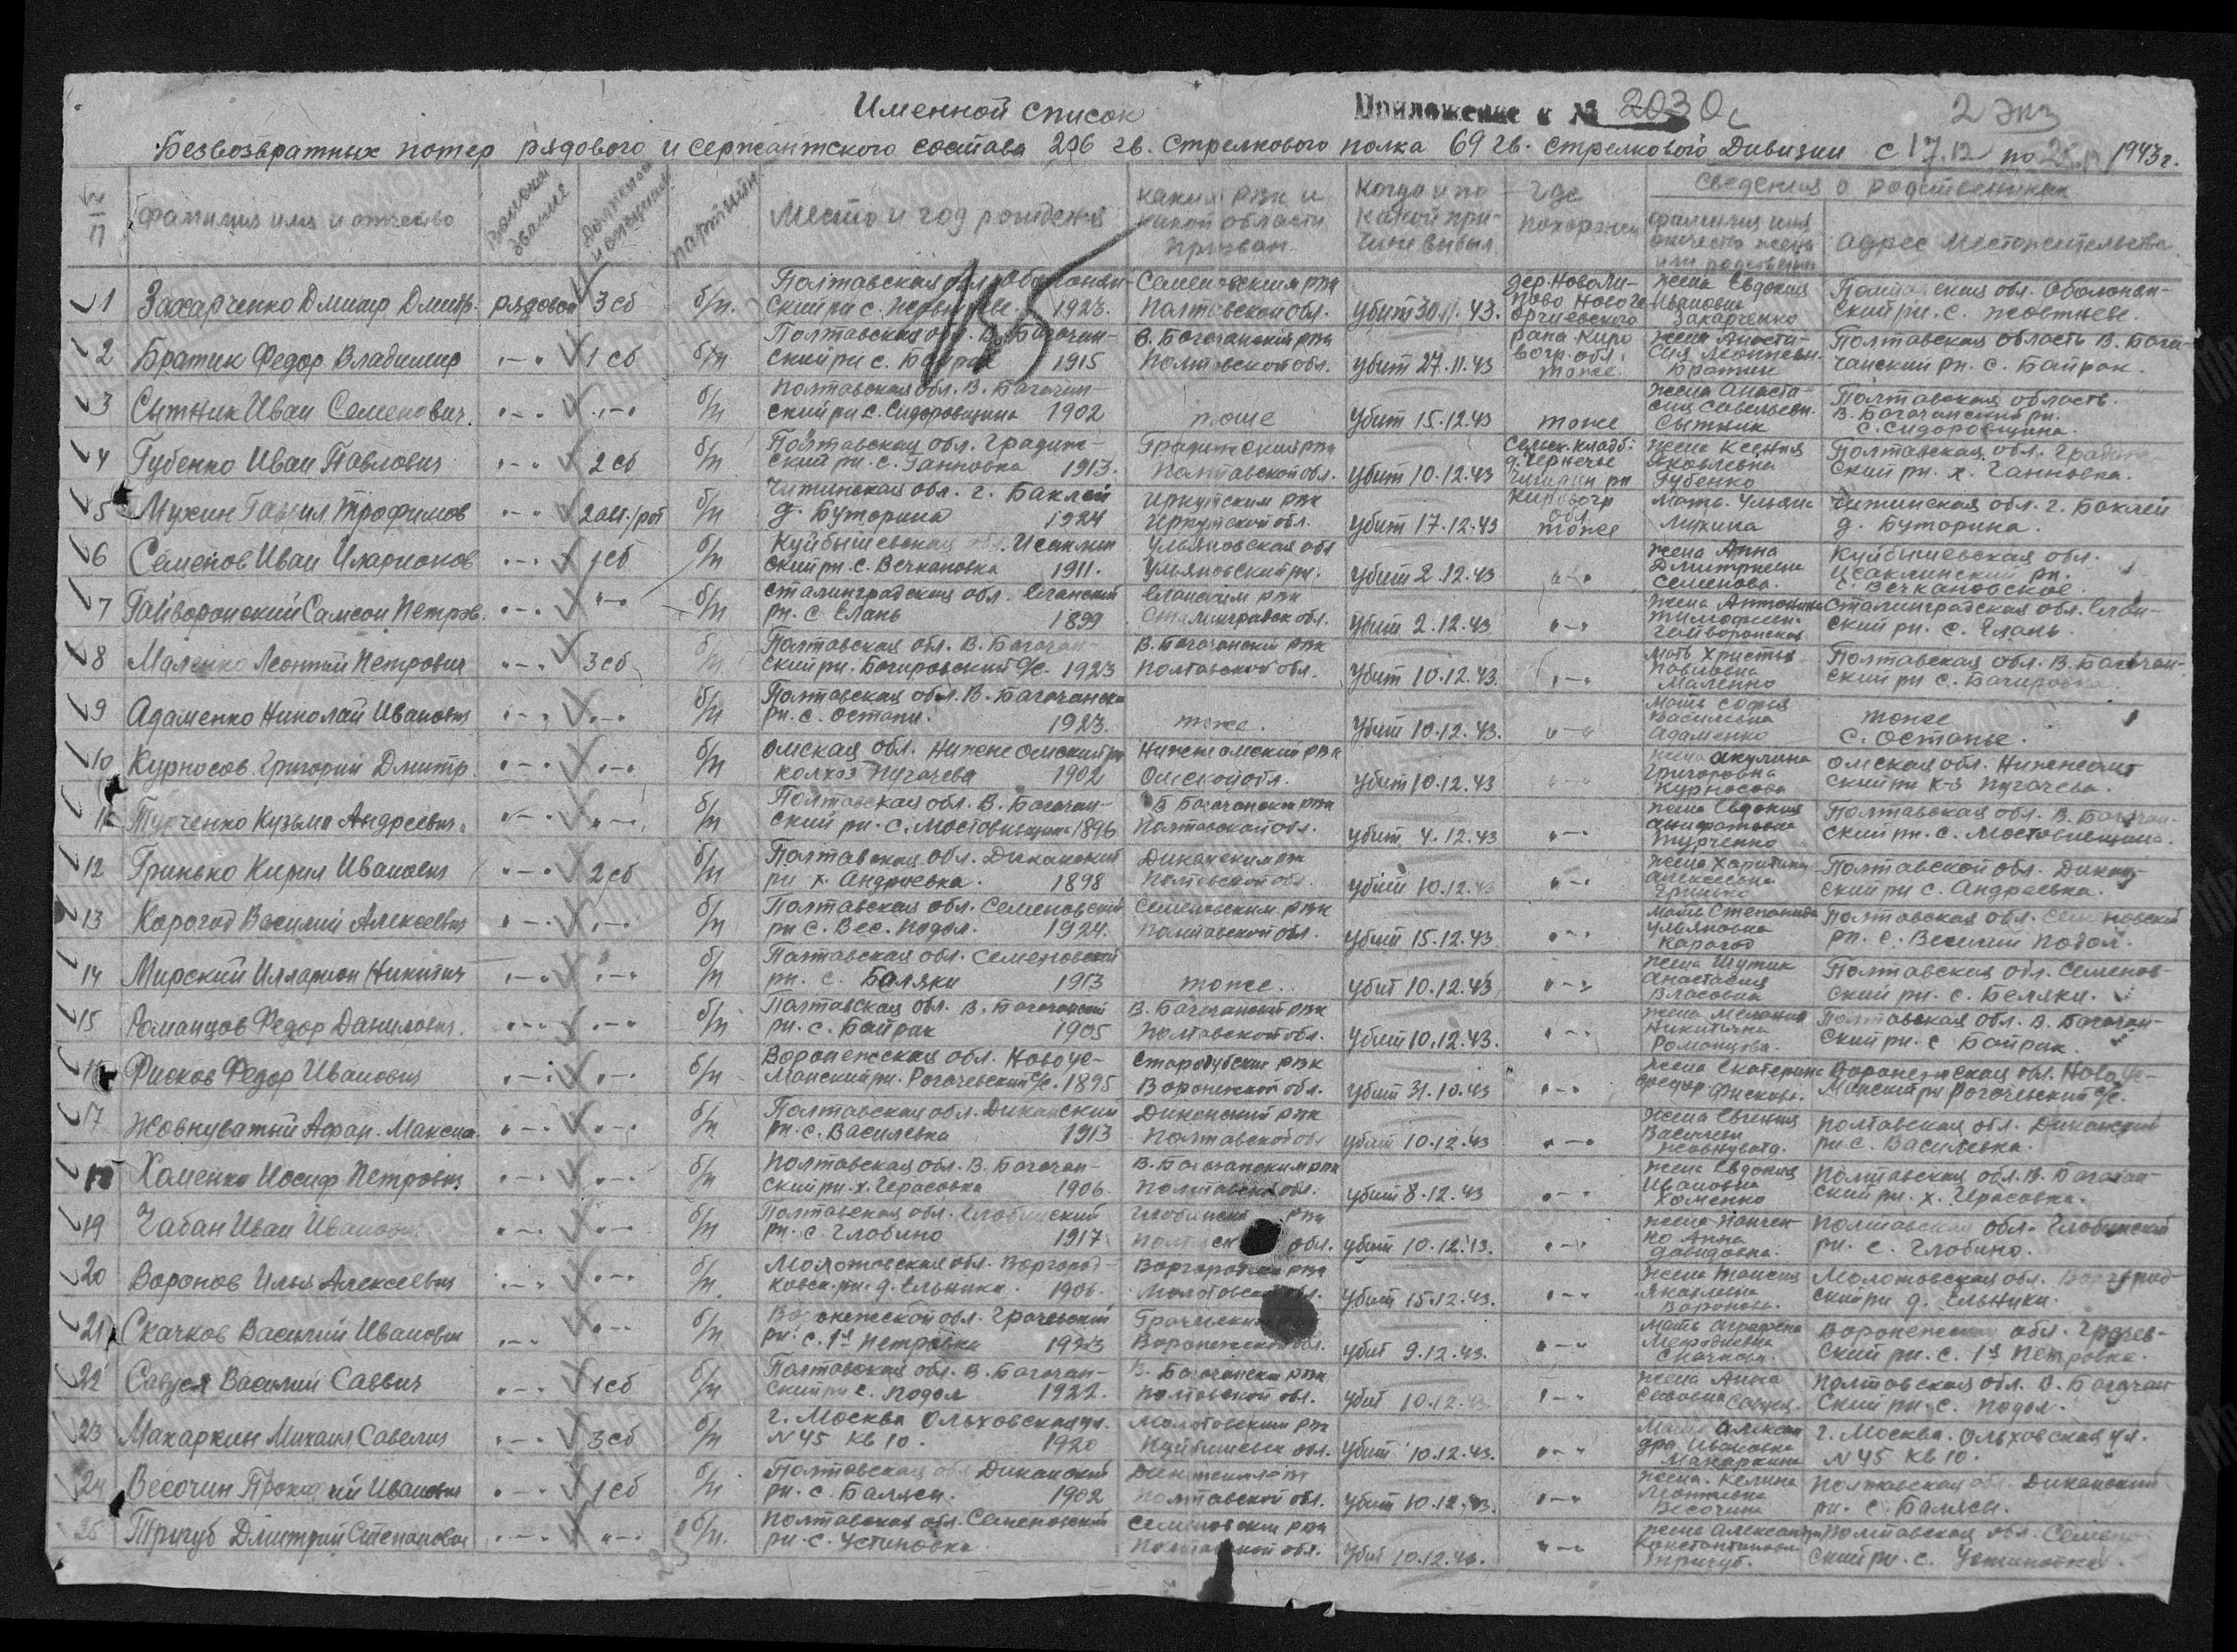 Именной список
Приложение к № 2030с
2 экз
Безвозвратных потер рядового и сержантского состава 206 гв. стрелкового полка 69 гв. стрелковой Дивизии с 17.12 по 1943 г.
№ п/п фамилия имя и отчество воинское звание должность и специальн. партийн. Место и год рождения каким РВК и какой области призван Когда и по какой причине выбыл где похоронен сведения о родственниках
фамилия имя отчество жены или родственн. адрес местожительства
1 Захарченко Дмитр Дмитр. рядовой 3 сб б/п. Полтавская обл. Оболонский рн с. 1923. Семеновским рвк Полтавской обл. убит 30.11.43. дер. Ново Ново Георгиевского рана Кировогр. обл. жена Евдокия Ивановна Захарченко Полтавская обл. Оболонский рн. с. Жовтневе.
2 Братик Федор Владимир -"- 1 сб б/п Полтавская обл. В. Багачанский рн с. Байрак 1915 В. Багачанский рвк Полтавской обл. убит 27.11.43 тоже жена Анастасия Леонтьевн. Братик Полтавская область В. Багачанский рн. с. Байрак.
3 Сытник Иван Семенович. -"- -"- б/п Полтавская обл. В. Багачанский рн с. Сидоровщина 1902 тоже Убит 15.12.43 тоже жена Анастасия Савельевн. Сытник Полтавская область. В. Багачанский рн. с. Сидоровщина.
4 Губенко Иван Павлович -"- 2 сб б/п Полтавская обл. Градижский рн. с. Ганновка 1913. Градижский рвк Полтавской обл. Убит 10.12.43 д. Чернече Чигирин рн Кировогр обл. жена Ксения Яковлевна Губенко Полтавская обл. Градижский рн. х. Ганновка.
5 Мухин Трофимов -"- б/п Читинская обл. г. Баклей д. Буторина 1924 Иркутским рвк Иркутской обл. убит 17.12.43 тоже мать Ульяна Мухина Читинская обл. г. Баклей д. Буторина.
6 Семенов Иван Иларионов -"- 1 сб б/п Куйбышевская обл. Исаклинский рн. с. Вечкановка 1911. Ульяновская обл Ульяновский рн. убит 2.12.43 -"- жена Анна Дмитриевн Семенова. Куйбышевская обл. Исаклинский рн. с. Вечкановское.
7 Гайворонский Самсон Петров. -"- -"- б/п Сталинградская обл. Еланский рн. с. Елань 1899 Еланским рвк Сталинградск обл. Убит 2.12.43 -"- жена Антонина Тимофеен. Гайворонская Сталинградская обл. Еланский рн. с. Елань.
8 Маленко Леонтий Петрович -"- 3 сб б/п Полтавская обл. В. Багачанский рн. Багировский с/с. 1923 В. Багачанский рвк Полтавской обл. Убит 10.12.43. -"- мать Христья Павловна Маленко Полтавская обл. В. Багачанский рн с. Багировка.
9 Адаменко Николай Иванович -"- -"- б/п Полтавская обл. В. Багачански рн. с. Остапи. 1923. тоже. Убит 10.12.43. -"- мать Софья Васильевна Адаменко тоже с. Остапье.
10 Курносов Григорий Дмитр. -"- -"- б/п Омская обл. Нижне Омский рн колхоз Пугачева 1902 Нижнеомский рвк Омской обл. убит 10.12.43 -"- жена Акулина Григоровна Курносова Омская обл. Нижнеомский рн к-з Пугачева.
11 Турченко Кузьма Андреевич. -"- -"- б/п Полтавская обл. В. Багачанский рн. с. Мостовивщина 1896 В Багачански рвк Полтавской обл. убит 4.12.43 -"- жена Евдокия Турченко Полтавская обл. В. Багачанский рн. с. Мостовивщина.
12 Гринько Кирил Иванович -"- 2 сб б/п Полтавская обл. Диканский рн х. Андреевка. 1898 Диканским рвк Полтавской обл. убит 10.12.43 -"- жена Харитина Алексеевна Гринько Полтавской обл. Диканский рн с. Андреевка.
13 Карогод Василий Алексеевич -"- -"- б/п Полтавская обл. Семеновский рн с. Вес. Подол. 1924. Семеновским рвк Полтавской обл. убит 15.12.43 -"- мать Степанида Ульяновна Карогод Полтавская обл. Семеновский рн. с. Веселий Подол.
14 Мирский Илларион Никитич -"- -"- б/п Полтавская обл. Семеновский рн. с. Баляки 1913 тоже. убит 10.12.43 -"- жена Шутик Анастасия Власовна Полтавская обл. Семеновский рн. с. Беляки.
15 Романцов Федор Данилович. -"- -"- б/п Полтавская обл. В. Багачанский рн. с. Байрак 1905 В. Багачанский рвк Полтавской обл. Убит 10.12.43. -"- жена Мелания Никитична Романцова. Полтавская обл. В. Багачанский рн. с Байрак.
16 Фисков Федор Иванович -"- -"- б/п Воронежская обл. Новоусманский рн. Рогачевский с/с. 1895 рвк Воронежской обл. Убит 31.10.43 -"- жена Екатерина Федор. Фискова. Воронежская обл. Новоусманский рн Рогачевский с/с.
17 Жовнуватый Афан. Максим. -"- -"- б/п Полтавская обл. Диканский рн. с. Василевка 1913 Диканский рвк Полтавской обл убит 10.12.43 -"- жена Евгения Васильевн Жовнуватд. Полтавская обл. Диканский рн с. Василевка.
18 Хоменко Иосиф Петрович -"- -"- б/п Полтавская обл. В. Багачанский рн. х. Герасовка 1906. В. Багачанским рвк Полтавской обл. убит 8.12.43 -"- жена Евдокия Ивановна Хоменко Полтавская обл. В. Багачанский рн. х. Герасовка.
19 Чабан Иван Иванович -"- -"- б/п Полтавская обл. Глобинский рн. с Глобино 1917 Глобинский рвк обл. убит 10.12.43. -"- жена Панченко Анна Давидовна. Полтавская обл. Глобинский рн. с. Глобино.
20 Воронов Илья Алексеевич -"- -"- б/п. Молотовская обл. рн. д. Ельники. 1906. рвк Молотовской обл. Убит 15.12.43. -"- жена Таисия Яковлевна Воронова. Молотовская обл. д. Ельники.
21 Скачков Василий Иванович -"- -"- б/п Воронежской обл. Грачевский рн. с. 1я Петровка 1923 Грачевским Воронежской обл. убит 9.12.43. -"- мать Аграфена Скачкова Воронежская обл. Грачевский рн. с. 1я Петровка.
22 Савуся Василий Саввич -"- 1 сб б/п Полтавская обл. В. Багачанский рн с. Подол 1922. В. Багачански рвк Полтавской обл. Убит 10.12.43 -"- жена Анна Савовна Савуся. Полтавская обл. В. Багачанский рн. с. Подол.
23 Макаркин Михаил Савелич -"- 3 сб б/п г. Москва Ольховская ул. N 45 кв 10. 1920 Молотовским рвк Куйбышевск обл. Убит 10.12.43. -"- мать Александра Ивановна Макаркина г. Москва. Ольховская ул. N 45 кв 10.
24 Весочин Иванович -"- 1 сб б/п Полтавская обл Диканский рн. с. Балясн. 1902 Полтавской обл. Убит 10.12.43. -"- жена Весочина Полтавская обл Диканский рн. с. Балясн.
25 Тригуб Дмитрий Степанович -"- -"- б/п. Полтавская обл. Семеновский рн с. Устиновка Семеновским рвк Полтавской обл. Убит 10.12.43. -"- жена Александра Константиновн Тригуб. Полтавская обл. Семеновский рн. с. Устиновка.
25